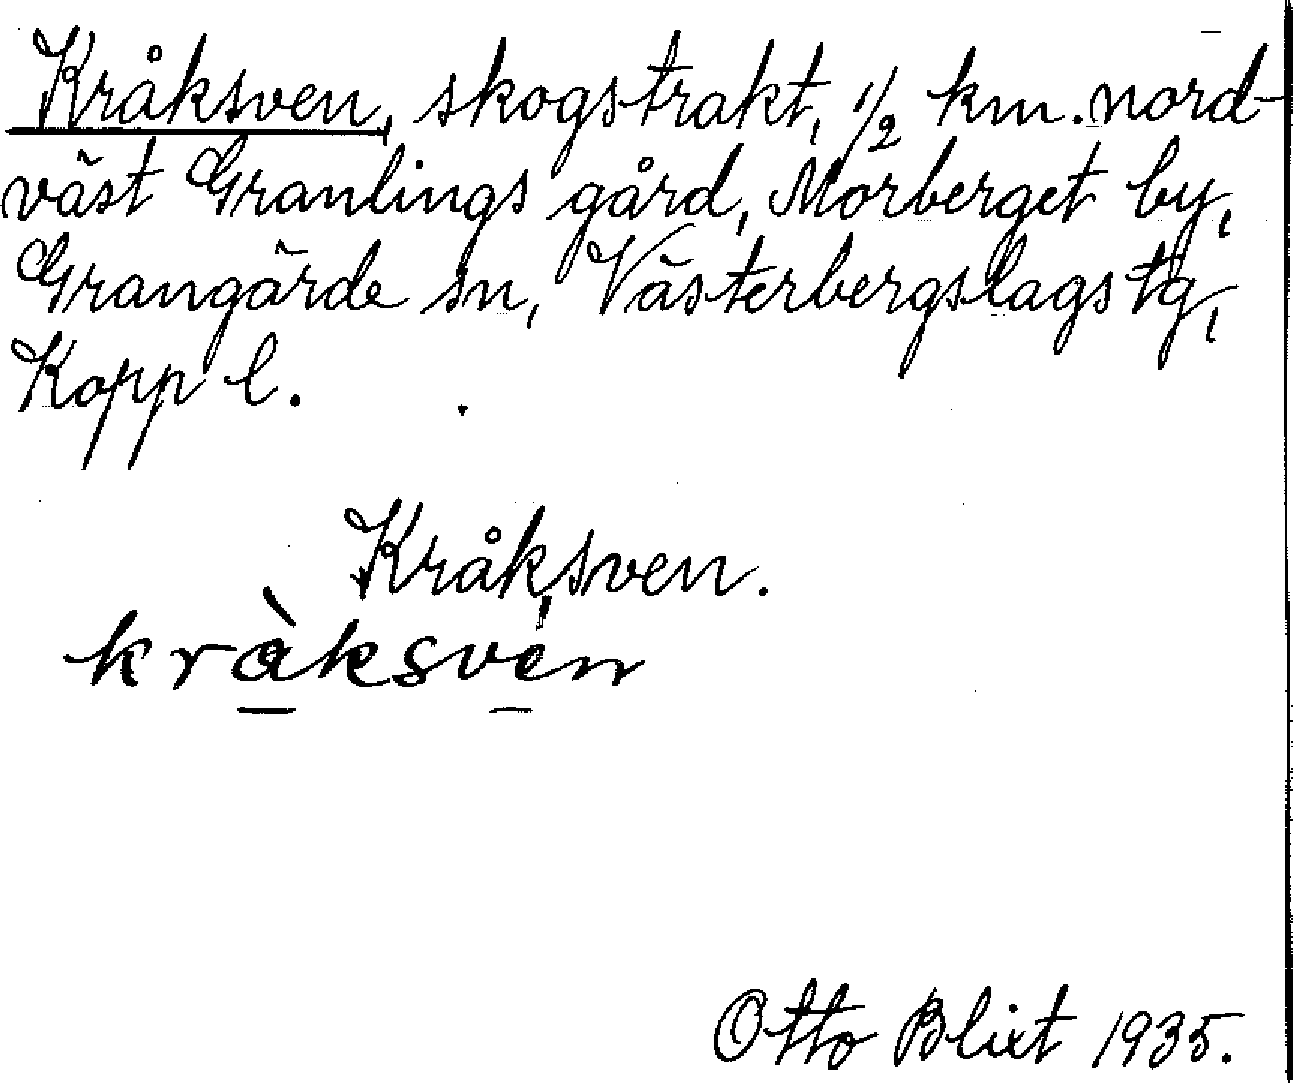 Kråksven, skogstrakt, 1/2 km. nord-
väst Granlings gård, Morberget by,
Grangärde sn, Västerbergslags tg,
Kopp l.
Kråksven.
kràksvén
Otto Blixt 1935.